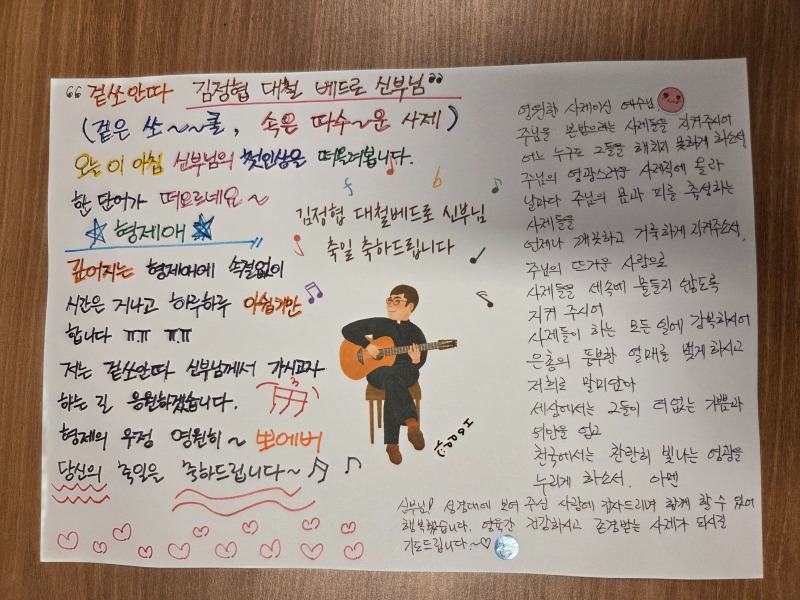 “ 겉쏘안따 김정협 대철 베드로 신부님 ”
(겉은 쏘~~쿨, 속은 따수~운 사제)
오늘 이 아침 신부님의 첫인상을 떠올려봅니다.
한 단어가 떠오르네요~
☆ 형제애 ☆
깊어지는 형제애에 속절없이
시간은 지나고 하루하루 아쉽기만
합니다 ㅠㅠ ㅠㅠ
저는 겉쏘안따 신부님께서 가시고자
하는 길 응원하겠습니다.
형제의 우정 영원히~ 뽀에버
당신의 축일을 축하드립니다~
김정협 대철베드로 신부님
축일 축하드립니다
영원한 사제이신 예수님
주님을 본받으려는 사제들을 지켜주시어
어느 누구도 그들을 해치지 못하게 하소서.
주님의 영광스러운 사제직에 올라
날마다 주님의 몸과 피를 축성하는
사제들을
언제나 깨끗하고 거룩하게 지켜주소서.
주님의 뜨거운 사랑으로
사제들을 세속에 물들지 않도록
지켜 주시어
사제들이 하는 모든 일에 강복하시어
은총의 풍부한 열매를 맺게 하시고
저희로 말미암아
세상에서는 그들이 더없는 기쁨과
위안을 얻고
천국에서는 찬란히 빛나는 영광을
누리게 하소서. 아멘
신부님! 성경대에 보여 주신 사랑에 감사드리며 함께 할 수 있어
행복했습니다. 건강하시고 존경받는 사제가 되시길
기도드립니다.~♡